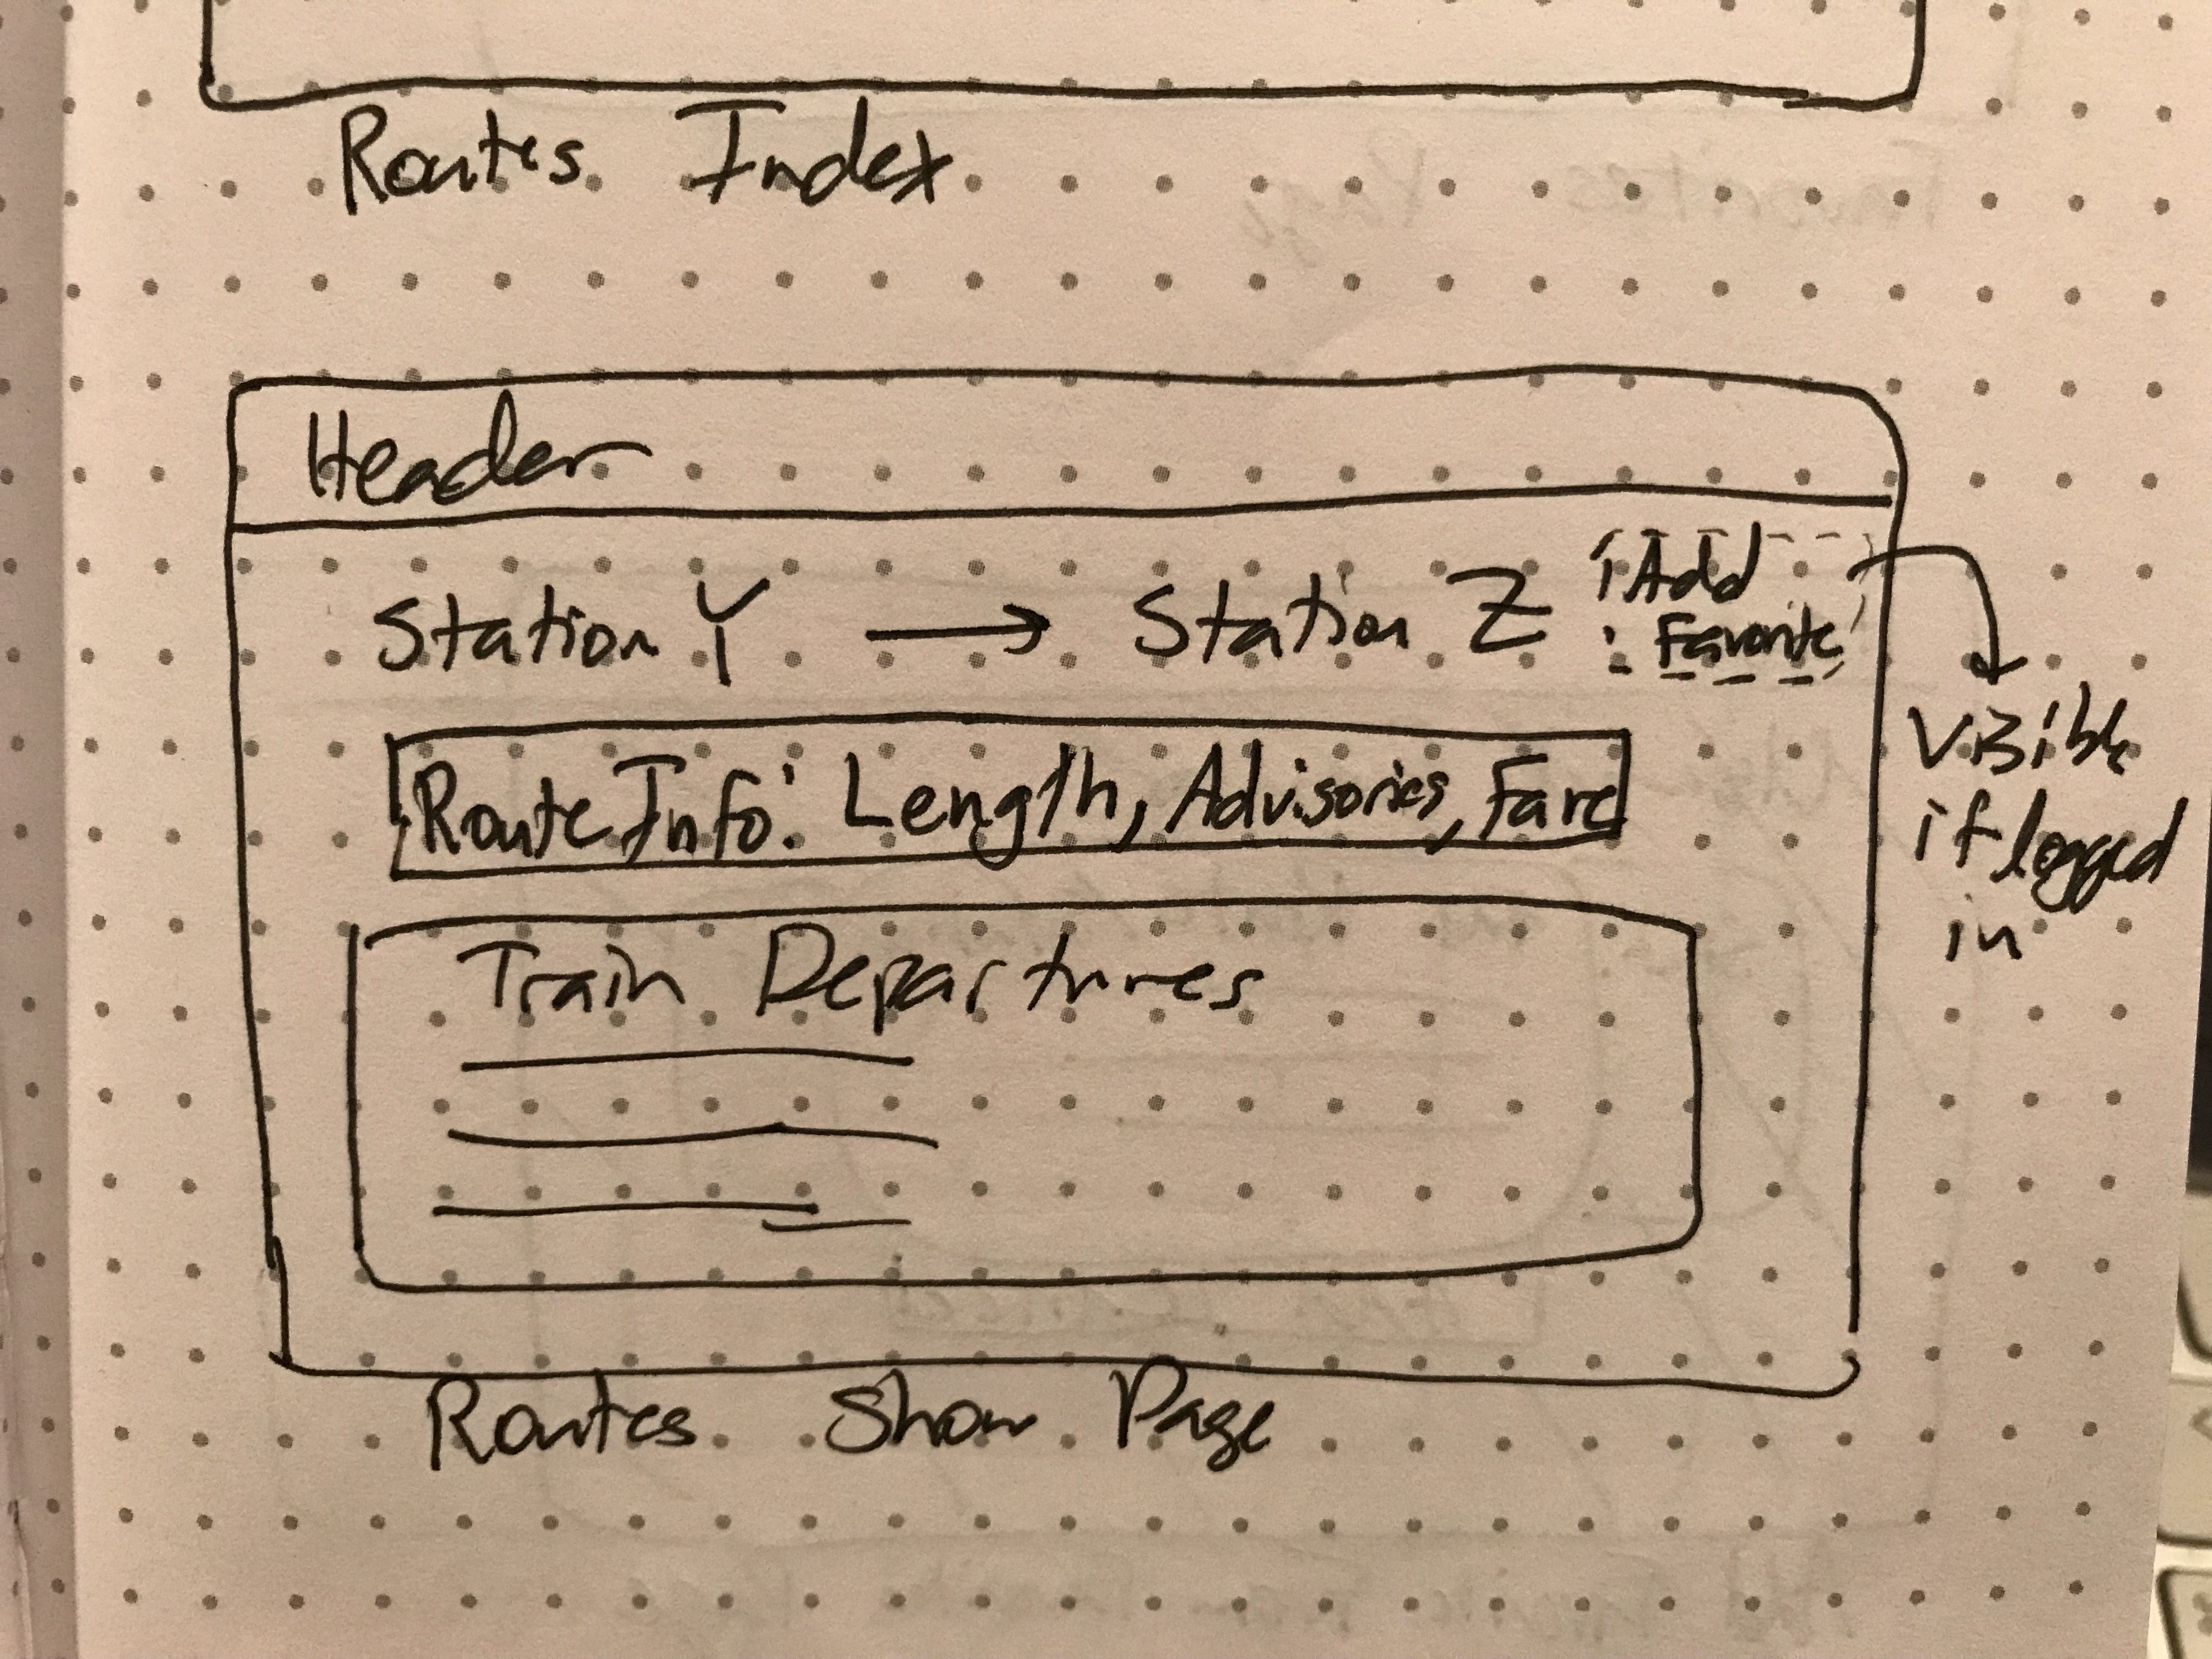 Routes Index
Header
Station Y → Station Z
Add
Favorite
visible
if logged
in
Route Info: Length, Advisories, Fare
Train Departures
Routes Show Page